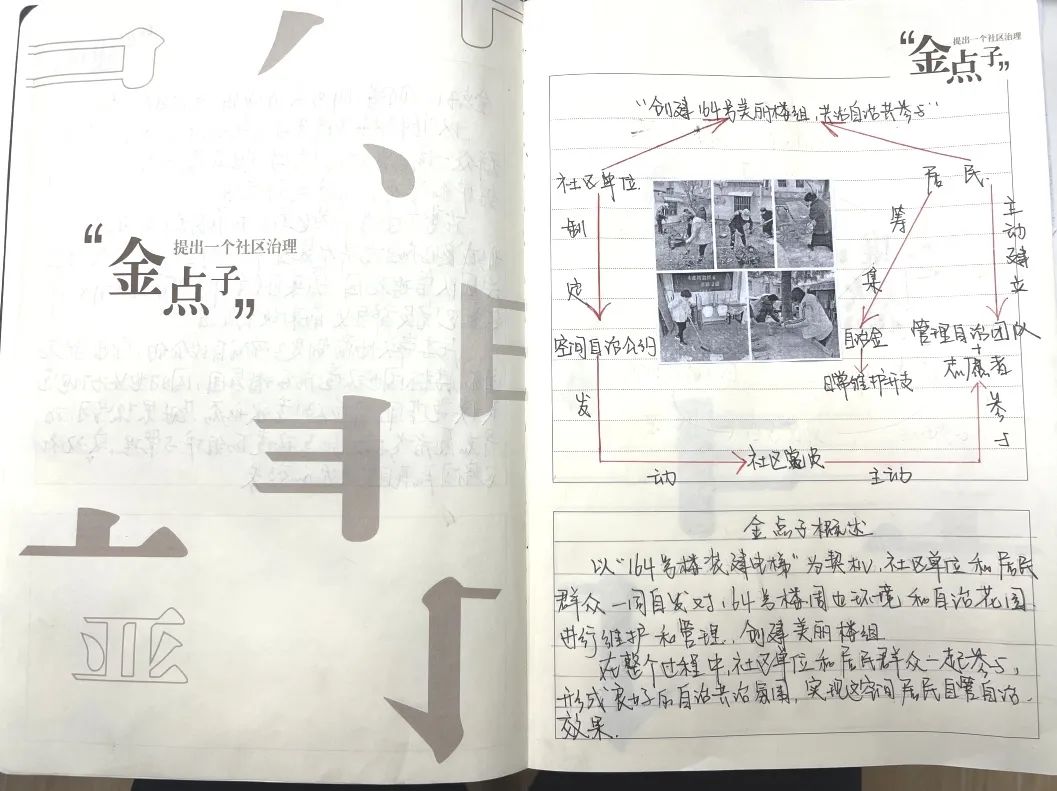 “金点子”
提出一个社区治理
“金点子”
提出一个社区治理
“创建164号美丽楼组,共治自治共参与”
社区单位
居民
制定
筹集
主动建立
空间自治公约
自治金
管理自治团队
+
志愿者
日常维护开支
发动
社区党员
主动
参与
金点子概述
以“164号楼装建电梯”为契机,社区单位和居民
群众一同自发对164号楼周边环境和自治花园
进行维护和管理,创建美丽楼组
在整个过程中,社区单位和居民群众一起参与,
形成良好的自治共治氛围,实现这空间居民自管自治
效果.